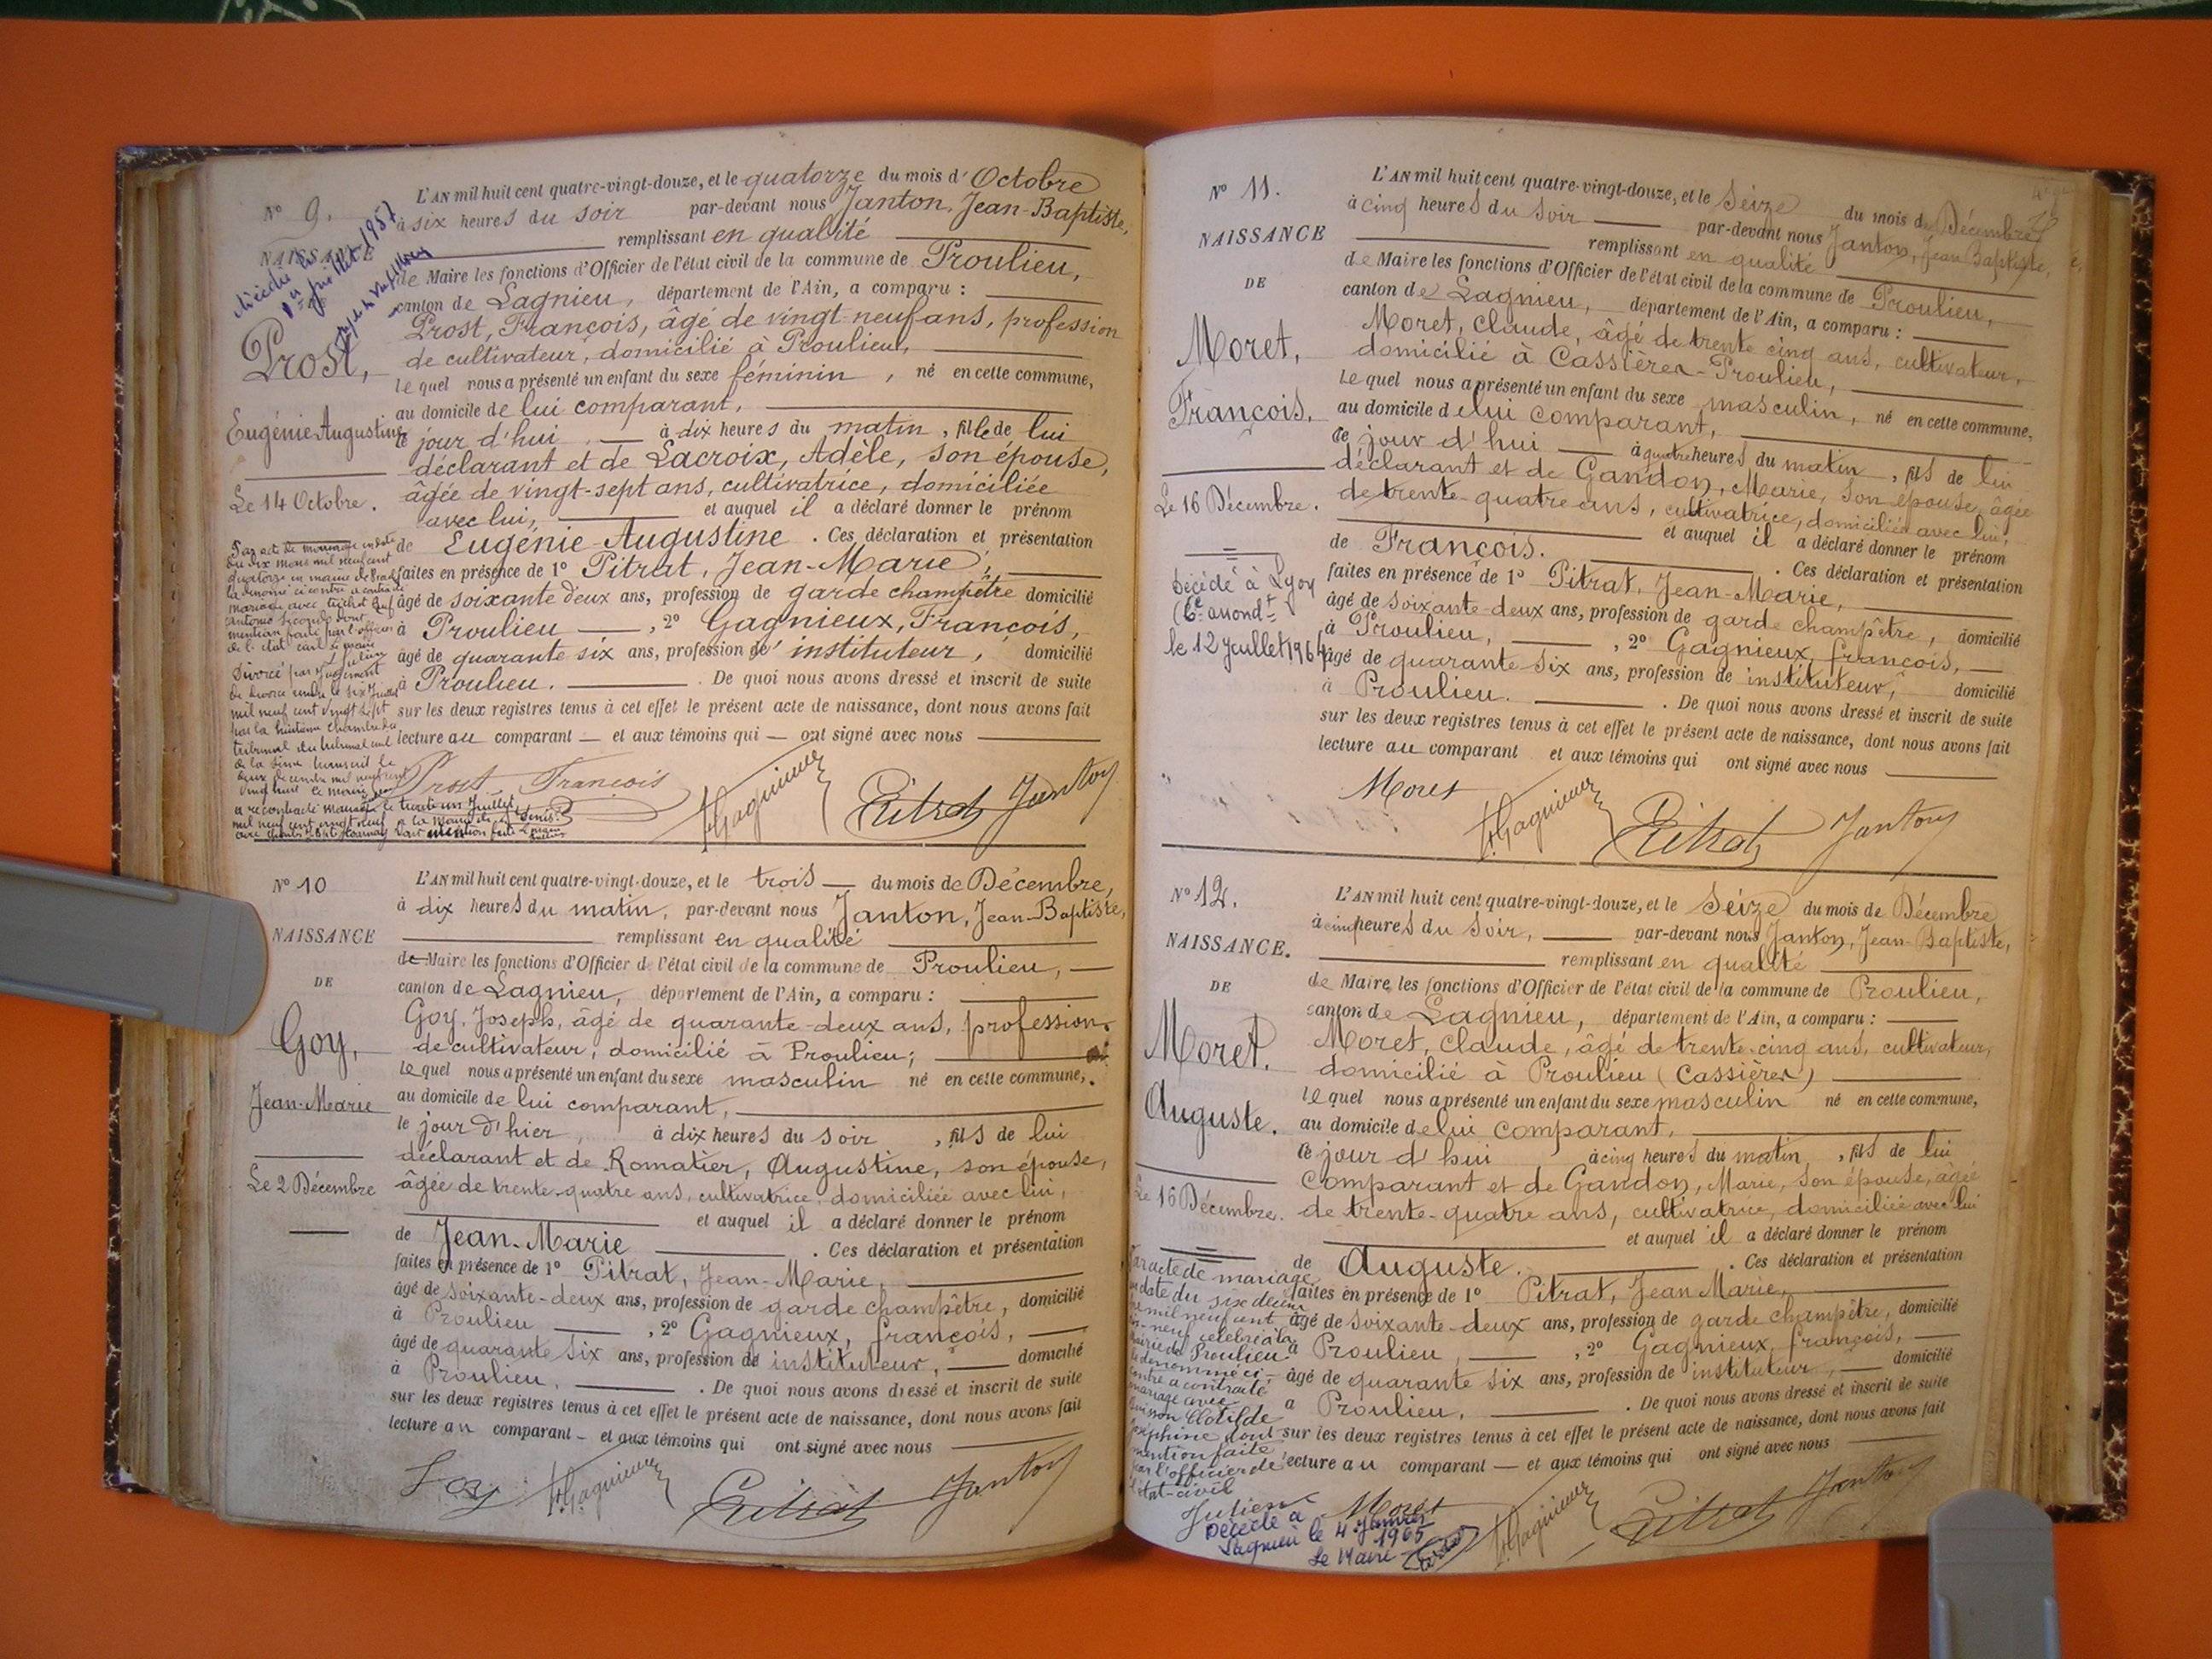 N° 9.
NAISSANCE
Prost,
Eugénie Augustine
Le 14 Octobre.
L'AN mil huit cent quatre-vingt-douze, et le quatorze du mois d'Octobre
à six heures du soir par-devant nous Janton, Jean-Baptiste,
remplissant en qualité
de Maire les fonctions d'Officier de l'état civil de la commune de Proulieu,
canton de Lagnieu, département de l'Ain, a comparu :
Prost, François, âgé de vingt neuf ans, profession
de cultivateur, domicilié à Proulieu,
lequel nous a présenté un enfant du sexe féminin, né en cette commune,
au domicile de lui comparant,
le jour d'hui, à dix heures du matin, fille de lui
déclarant et de Lacroix, Adèle, son épouse,
âgée de vingt-sept ans, cultivatrice, domiciliée
avec lui, et auquel il a déclaré donner le prénom
de Eugénie Augustine. Ces déclaration et présentation
faites en présence de 1° Pitrat, Jean-Marie,
âgé de soixante deux ans, profession de garde champêtre domicilié
à Proulieu, 2° Gagnieux, François,
âgé de quarante six ans, profession de instituteur, domicilié
à Proulieu. De quoi nous avons dressé et inscrit de suite
sur les deux registres tenus à cet effet le présent acte de naissance, dont nous avons fait
lecture au comparant et aux témoins qui ont signé avec nous
Prost François
Gagnieux Pitrat Janton
N° 10
NAISSANCE
DE
Goy,
Jean-Marie
Le 2 Décembre
L'AN mil huit cent quatre-vingt-douze, et le trois du mois de Décembre,
à dix heures du matin, par-devant nous Janton, Jean-Baptiste,
remplissant en qualité
de Maire les fonctions d'Officier de l'état civil de la commune de Proulieu,
canton de Lagnieu, département de l'Ain, a comparu :
Goy, Joseph, âgé de quarante-deux ans, profession
de cultivateur, domicilié à Proulieu;
lequel nous a présenté un enfant du sexe masculin né en cette commune,
au domicile de lui comparant,
le jour d'hier, à dix heures du soir, fils de lui
déclarant et de Romatier, Augustine, son épouse,
âgée de trente-quatre ans, cultivatrice, domiciliée avec lui,
et auquel il a déclaré donner le prénom
de Jean-Marie. Ces déclaration et présentation
faites en présence de 1° Pitrat, Jean-Marie,
âgé de soixante-deux ans, profession de garde champêtre, domicilié
à Proulieu, 2° Gagnieux, françois,
âgé de quarante six ans, profession de instituteur, domicilié
à Proulieu, . De quoi nous avons dressé et inscrit de suite
sur les deux registres tenus à cet effet le présent acte de naissance, dont nous avons fait
lecture au comparant et aux témoins qui ont signé avec nous
Goy Gagnieux Pitrat Janton
N° 11.
NAISSANCE
DE
Moret,
François.
Le 16 Décembre.
Décédé à Lyon
(6e arrondt)
le 12 Juillet 1964
L'AN mil huit cent quatre-vingt-douze, et le Seize du mois de Décembre
à cinq heures du soir par-devant nous Janton, Jean Baptiste,
remplissant en qualité
de Maire les fonctions d'Officier de l'état civil de la commune de Proulieu,
canton de Lagnieu, département de l'Ain, a comparu :
Moret, Claude, âgé de trente cinq ans, cultivateur,
domicilié à Cassières-Proulieu,
lequel nous a présenté un enfant du sexe masculin, né en cette commune,
au domicile de lui comparant,
le jour d'hui à quatre heures du matin, fils de lui
déclarant et de Gandon, Marie, son épouse, âgée
de trente-quatre ans, cultivatrice, domiciliée avec lui,
et auquel il a déclaré donner le prénom
de François. . Ces déclaration et présentation
faites en présence de 1° Pitrat, Jean-Marie,
âgé de soixante-deux ans, profession de garde champêtre, domicilié
à Proulieu, , 2° Gagnieux, françois,
âgé de quarante six ans, profession de instituteur, domicilié
à Proulieu. . De quoi nous avons dressé et inscrit de suite
sur les deux registres tenus à cet effet le présent acte de naissance, dont nous avons fait
lecture au comparant et aux témoins qui ont signé avec nous
Moret Gagnieux Pitrat Janton
N° 12.
NAISSANCE.
DE
Moret.
Auguste.
Le 16 Décembre.
L'AN mil huit cent quatre-vingt-douze, et le Seize du mois de Décembre
à cinq heures du soir, par-devant nous Janton, Jean-Baptiste,
remplissant en qualité
de Maire les fonctions d'Officier de l'état civil de la commune de Proulieu,
canton de Lagnieu, département de l'Ain, a comparu :
Moret, Claude, âgé de trente-cinq ans, cultivateur,
domicilié à Proulieu (Cassières)
lequel nous a présenté un enfant du sexe masculin né en cette commune,
au domicile de lui comparant,
le jour d'hui à cinq heures du matin, fils de lui
comparant et de Gandon, Marie, son épouse, âgée
de trente-quatre ans, cultivatrice, domiciliée avec lui
et auquel il a déclaré donner le prénom
de Auguste. . Ces déclaration et présentation
faites en présence de 1° Pitrat, Jean Marie,
âgé de soixante-deux ans, profession de garde champêtre, domicilié
à Proulieu, , 2° Gagnieux, françois,
âgé de quarante six ans, profession de instituteur, domicilié
à Proulieu, . De quoi nous avons dressé et inscrit de suite
sur les deux registres tenus à cet effet le présent acte de naissance, dont nous avons fait
lecture au comparant et aux témoins qui ont signé avec nous
acte de mariage
date du six décem
mil neuf cent
neuf célébré à la
mairie de Proulieu
contracté
mariage avec
Clotilde
Joséphine dont
mention faite
par l'officier de
l'état-civil
Jullien Moret Gagnieux Pitrat Janton
Décédé à
Lagnieu le 4 Janvier
1965
Le Maire